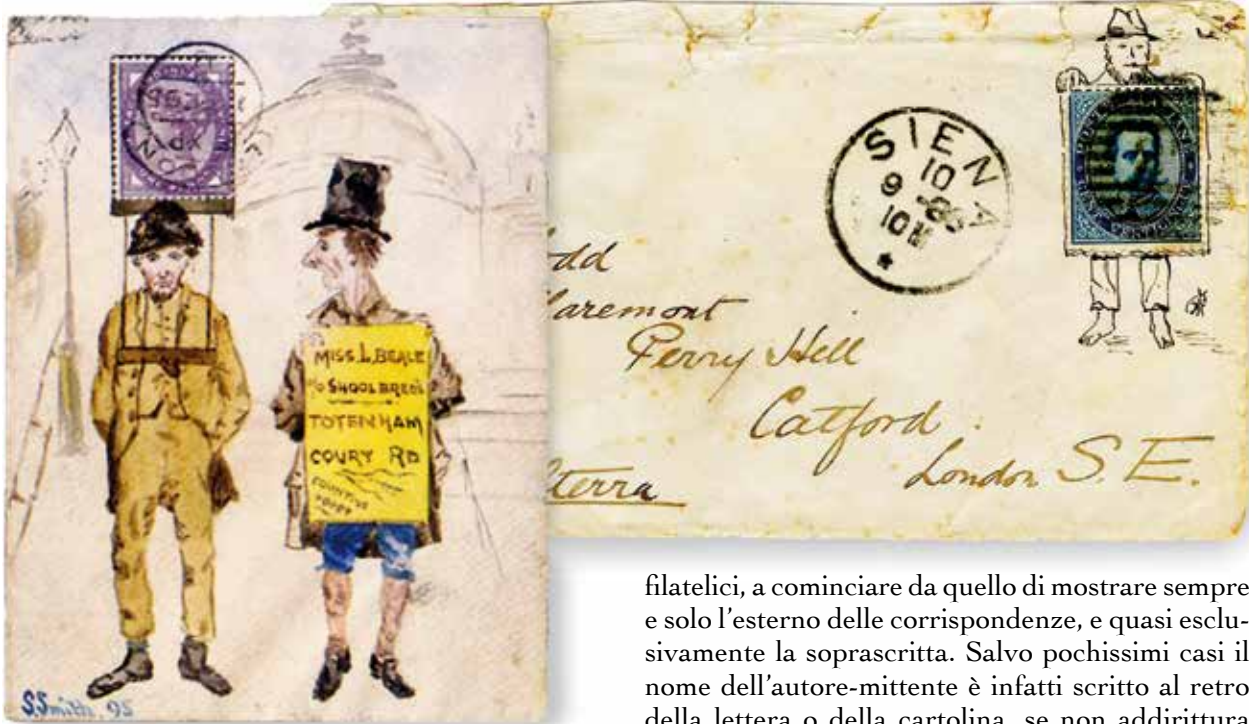 MISS.L.BEALE
SHOOLBRED'S
TOTENHAM
COURY RD
S.Smith. 95
SIENA
10
9 - 86
10 M
Perry Hill
Catford
London S.E.
filatelici, a cominciare da quello di mostrare sempre
e solo l'esterno delle corrispondenze, e quasi esclu-
sivamente la soprascritta. Salvo pochissimi casi il
nome dell'autore-mittente è infatti scritto al retro
della lettera o della cartolina, se non addirittura